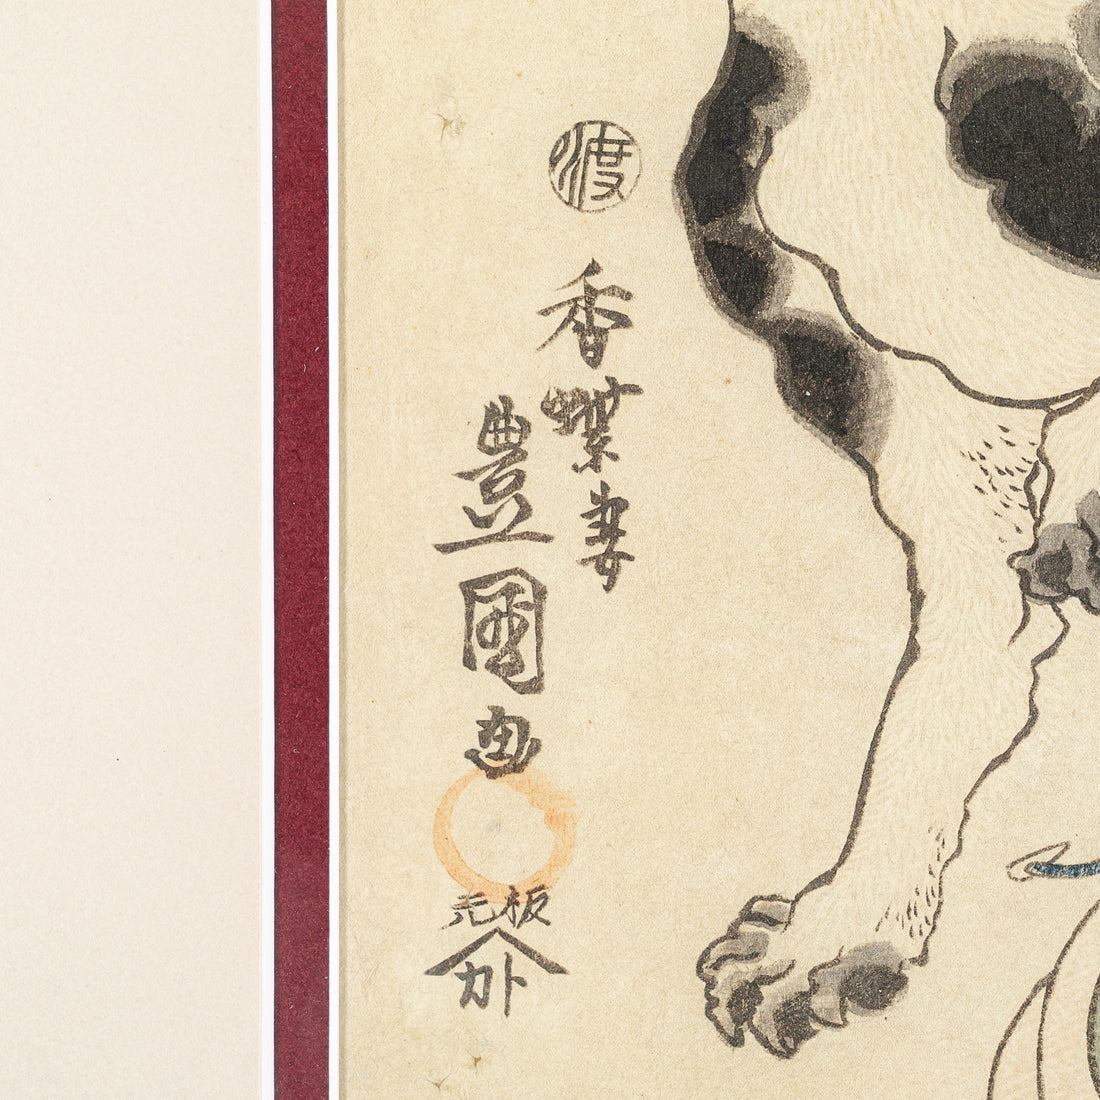 渡
香蝶樓
豊國画
板元
カト